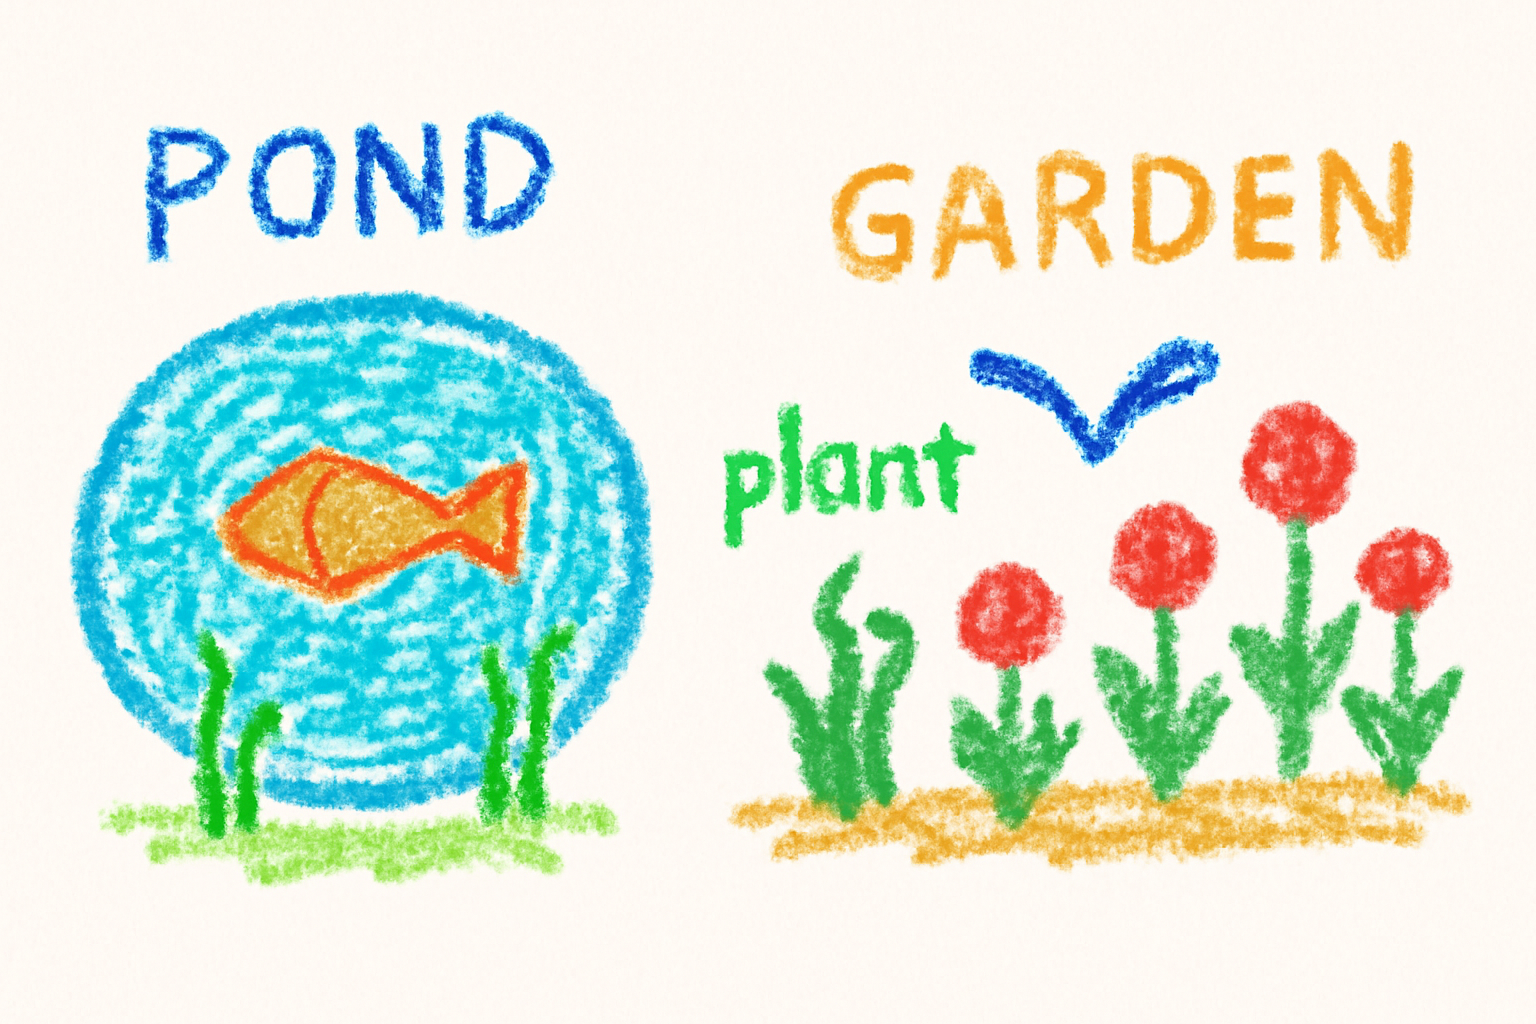 POND
GARDEN
plant